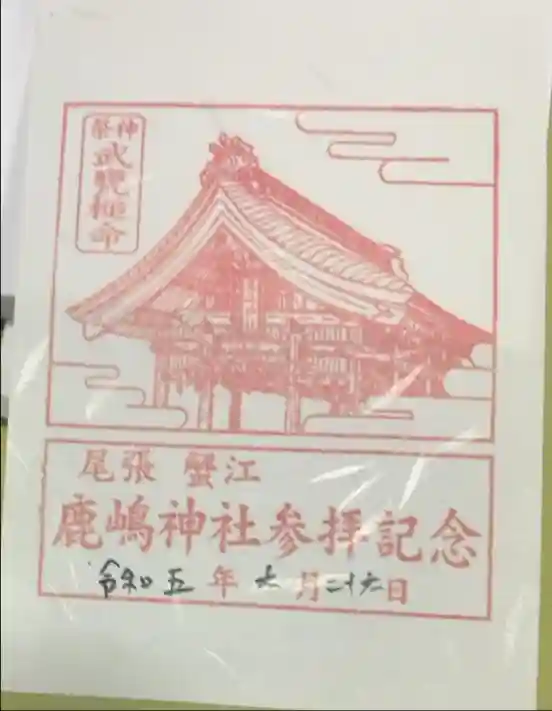 祭神
武甕槌命
尾張 蟹江
鹿嶋神社参拝記念
令和五年六月二十六日